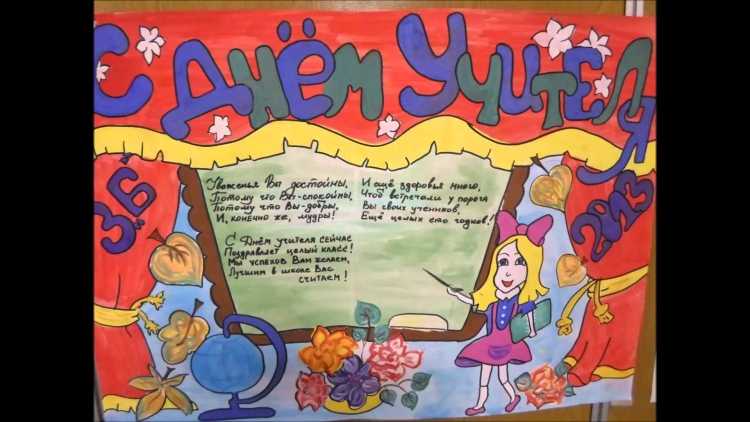 С Днём Учителя
3Б
2013
Уваженья Вы достойны,
Потому что Вы-спокойны,
Потому что Вы-добры,
И, конечно же, мудры!
С Днём учителя сейчас
Поздравляет целый класс!
Мы успехов Вам желаем,
Лучшим в школе Вас
считаем!
И ещё здоровья много,
Чтоб встречали у порога
Вы своих учеников,
Ещё целых сто годков!